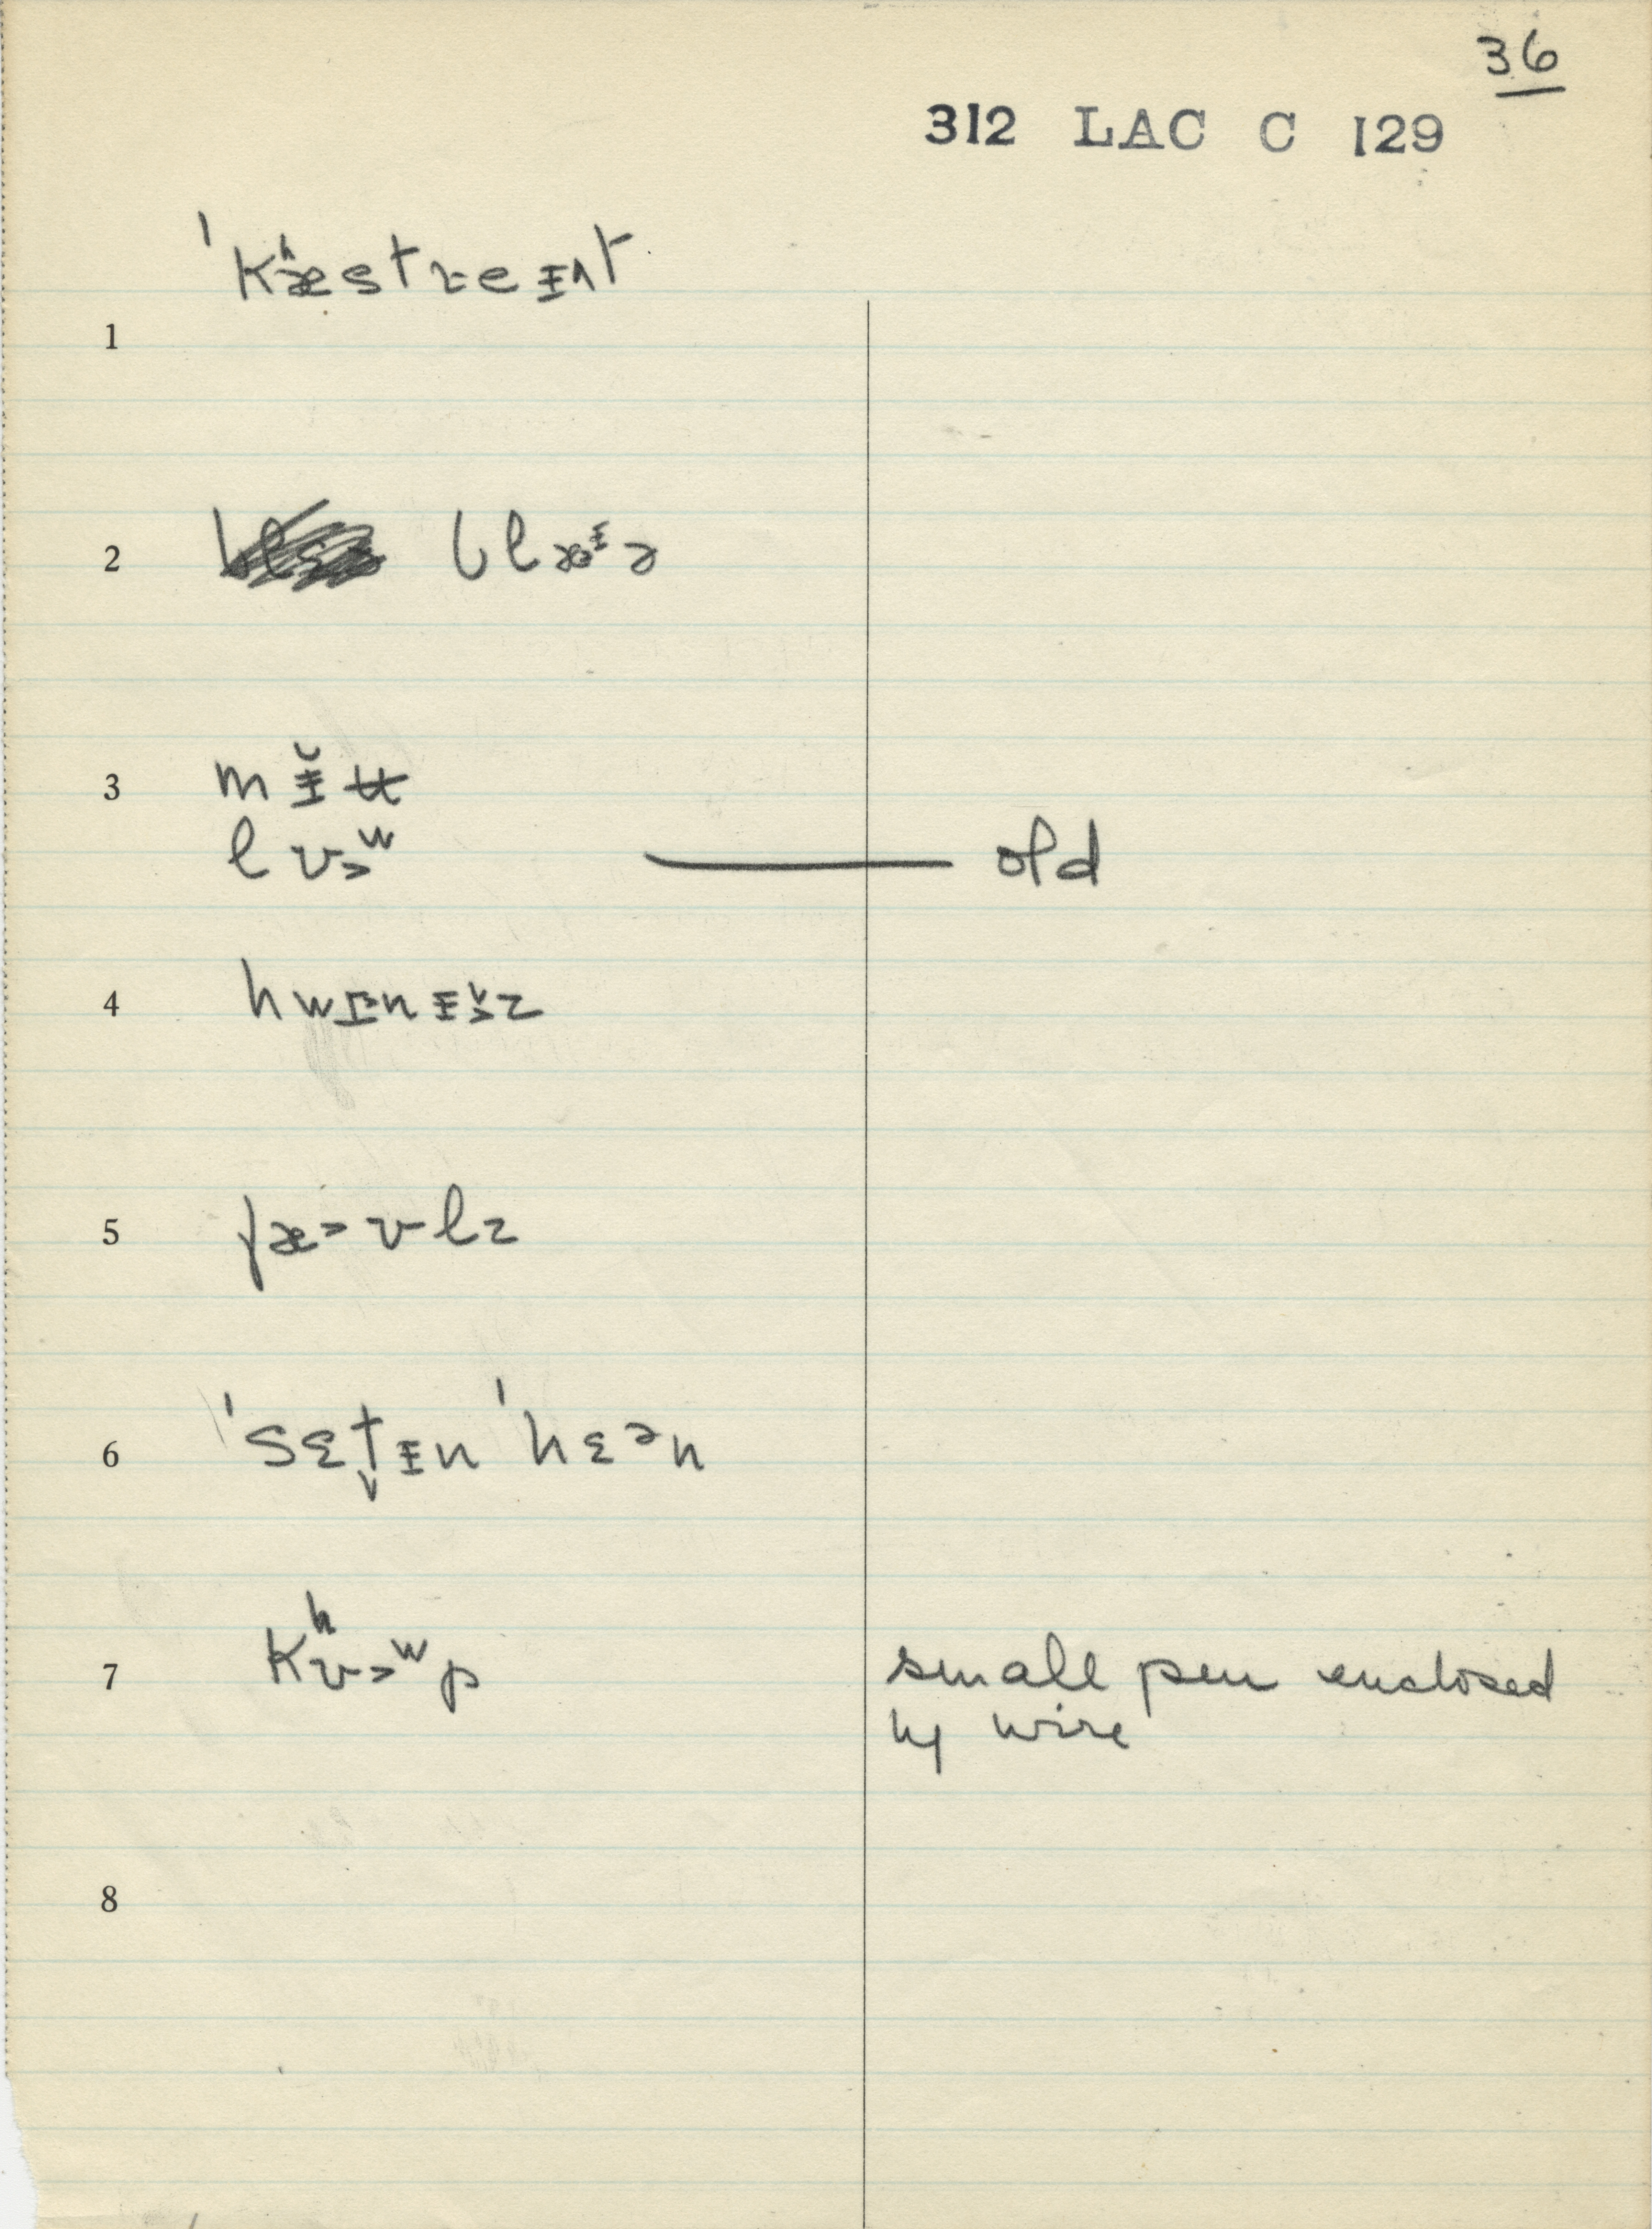 36
312 LAC C 129
ˈkʰæstreɪnt
1
2 blæᵻə
3 mᵻ̆ʉ
lɒ>ʷ old
4 hwɪnᵻz
5 fæ>ɒlz
6 ˈsɛt̬ᵻn ˈhɛən
7 kʰɒ>ʷp small pen enclosed
by wire
8